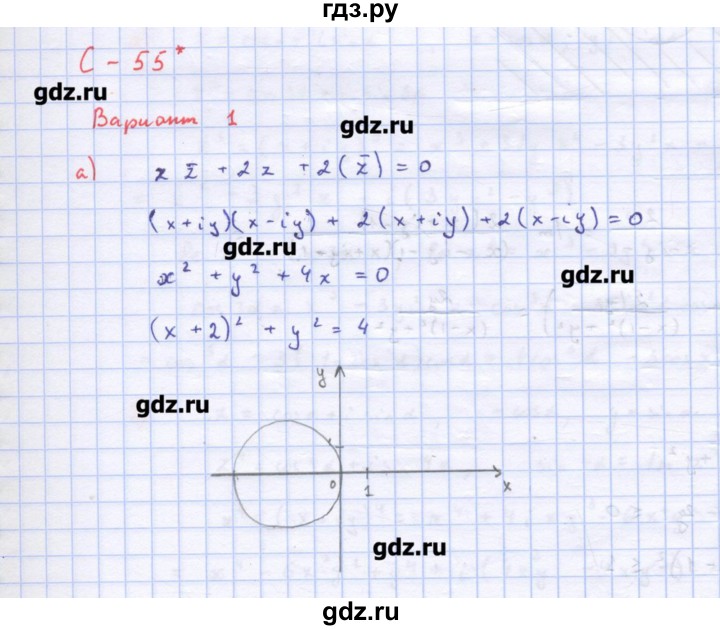 гдз.ру
С - 55*
gdz.ru
Вариант 1
gdz.ru
а) z z̄ + 2 z + 2 ( z̄ ) = 0
(x + iy)(x - iy) + 2 (x + iy) + 2 (x - iy) = 0
gdz.ru
x² + y² + 4x = 0
gdz.ru
(x + 2)² + y² = 4
y
gdz.ru
0
1
x
gdz.ru
gdz.ru